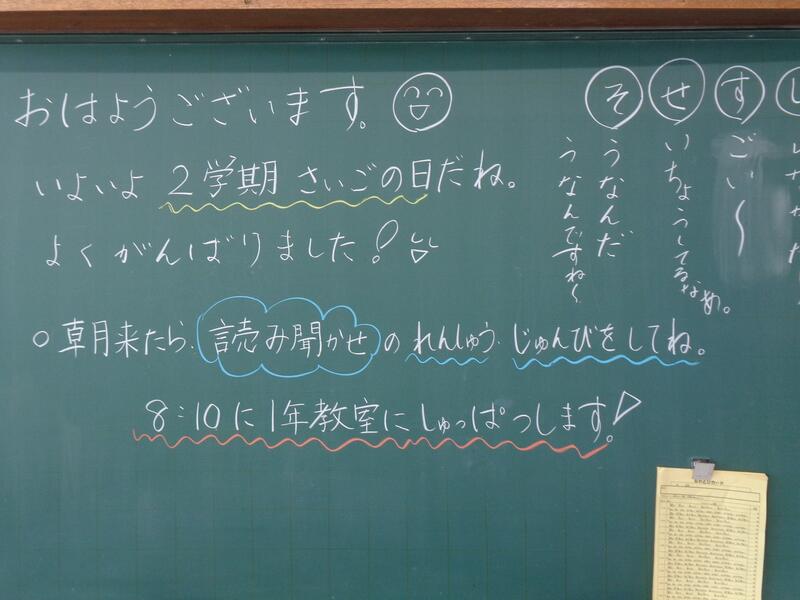 おはようございます。
いよいよ 2学期 さいごの日だね。
よくがんばりました!
○ 朝来たら、読み聞かせの れんしゅう、じゅんびをしてね。
8:10に1年教室にしゅっぱつします。
し
す ごい〜
せ いちょうしてるなぁ。
そ うなんだ
うなんですね〜